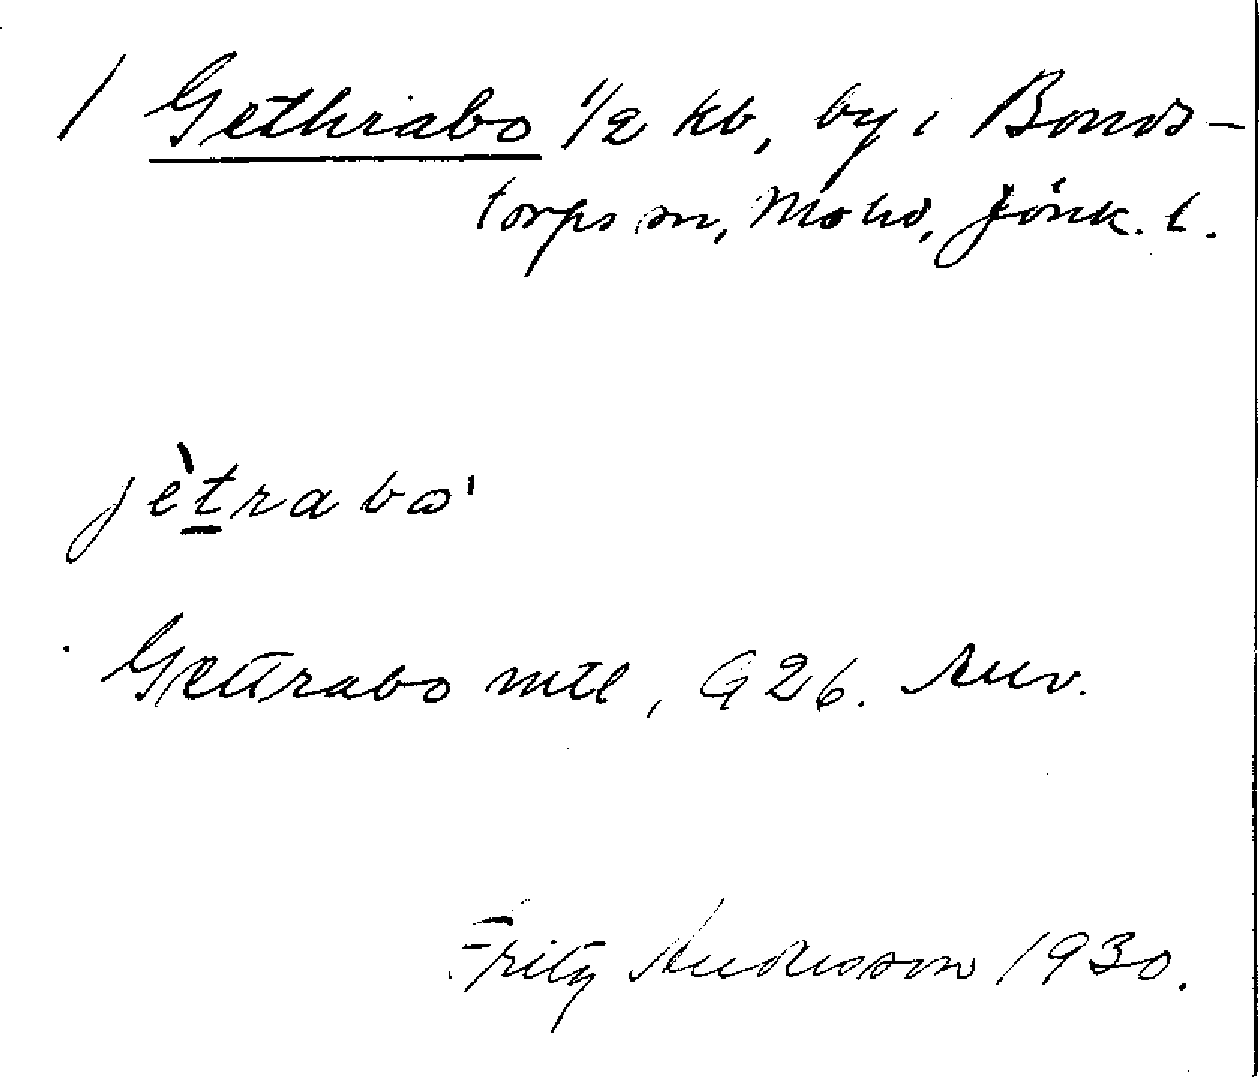 / Gethrabo 1/2 kb, by i Bonds-
torps sn, Mo hd, Jönk. l.
jètrabo'
Gettrabo mtl, G 26.
Fritz Andersson 1930.